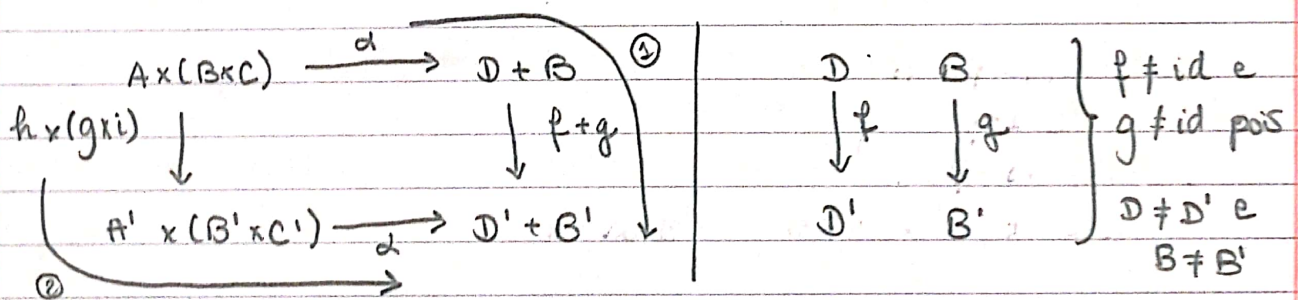 α
①
A × (B×C) ⟶ D + B
h×(g×i) ↓ ↓ f+g
A' × (B'×C') ⟶ D' + B'
α
②
D B
↓ f ↓ g
D' B'
f ≠ id e
g ≠ id pois
D ≠ D' e
B ≠ B'